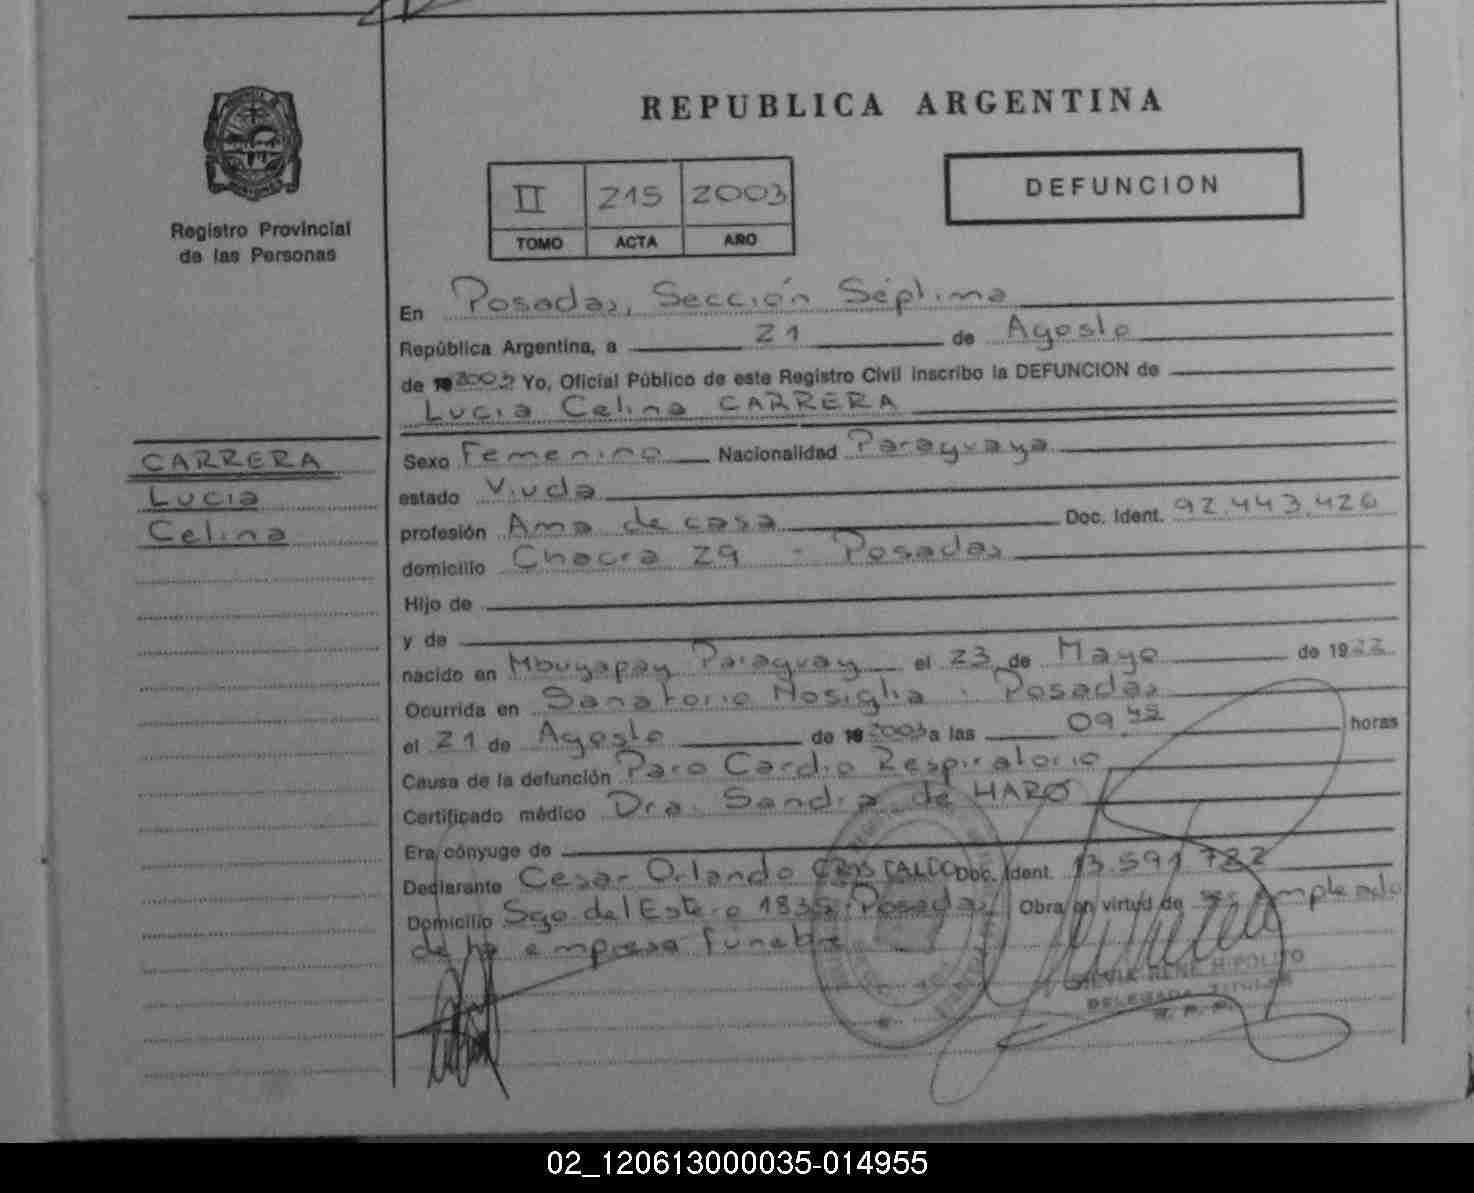 REPUBLICA ARGENTINA
Registro Provincial
de las Personas
II 215 2003
TOMO ACTA AÑO
DEFUNCION
En Posadas, Sección Séptima
República Argentina, a 21 de Agosto
de 19 2003 Yo, Oficial Público de este Registro Civil inscribo la DEFUNCION de
Lucia Celina CARRERA
CARRERA
Lucia
Celina
Sexo Femenino Nacionalidad Paraguaya
estado Viuda
profesión Ama de casa Doc. Ident. 92.443.426
domicilio Chacra 29 - Posadas
Hijo de
y de
nacido en Mbuyapay Paraguay el 23 de Mayo de 1922
Ocurrida en Sanatorio Nosiglia - Posadas
el 21 de Agosto de 19 2003 a las 09 45 horas
Causa de la defunción Paro Cardio Respiratorio
Certificado médico Dra. Sandra de HARO
Era cónyuge de
Declarante Cesar Orlando CRISTALDO Doc. Ident. 13.591.782
Domicilio Sgo. del Estero Posadas Obra en virtud de ser empleado
de la empresa funebre
SILVIA RENE HIPOLITO
DELEGADA TITULAR
R. P. P.
02_120613000035-014955